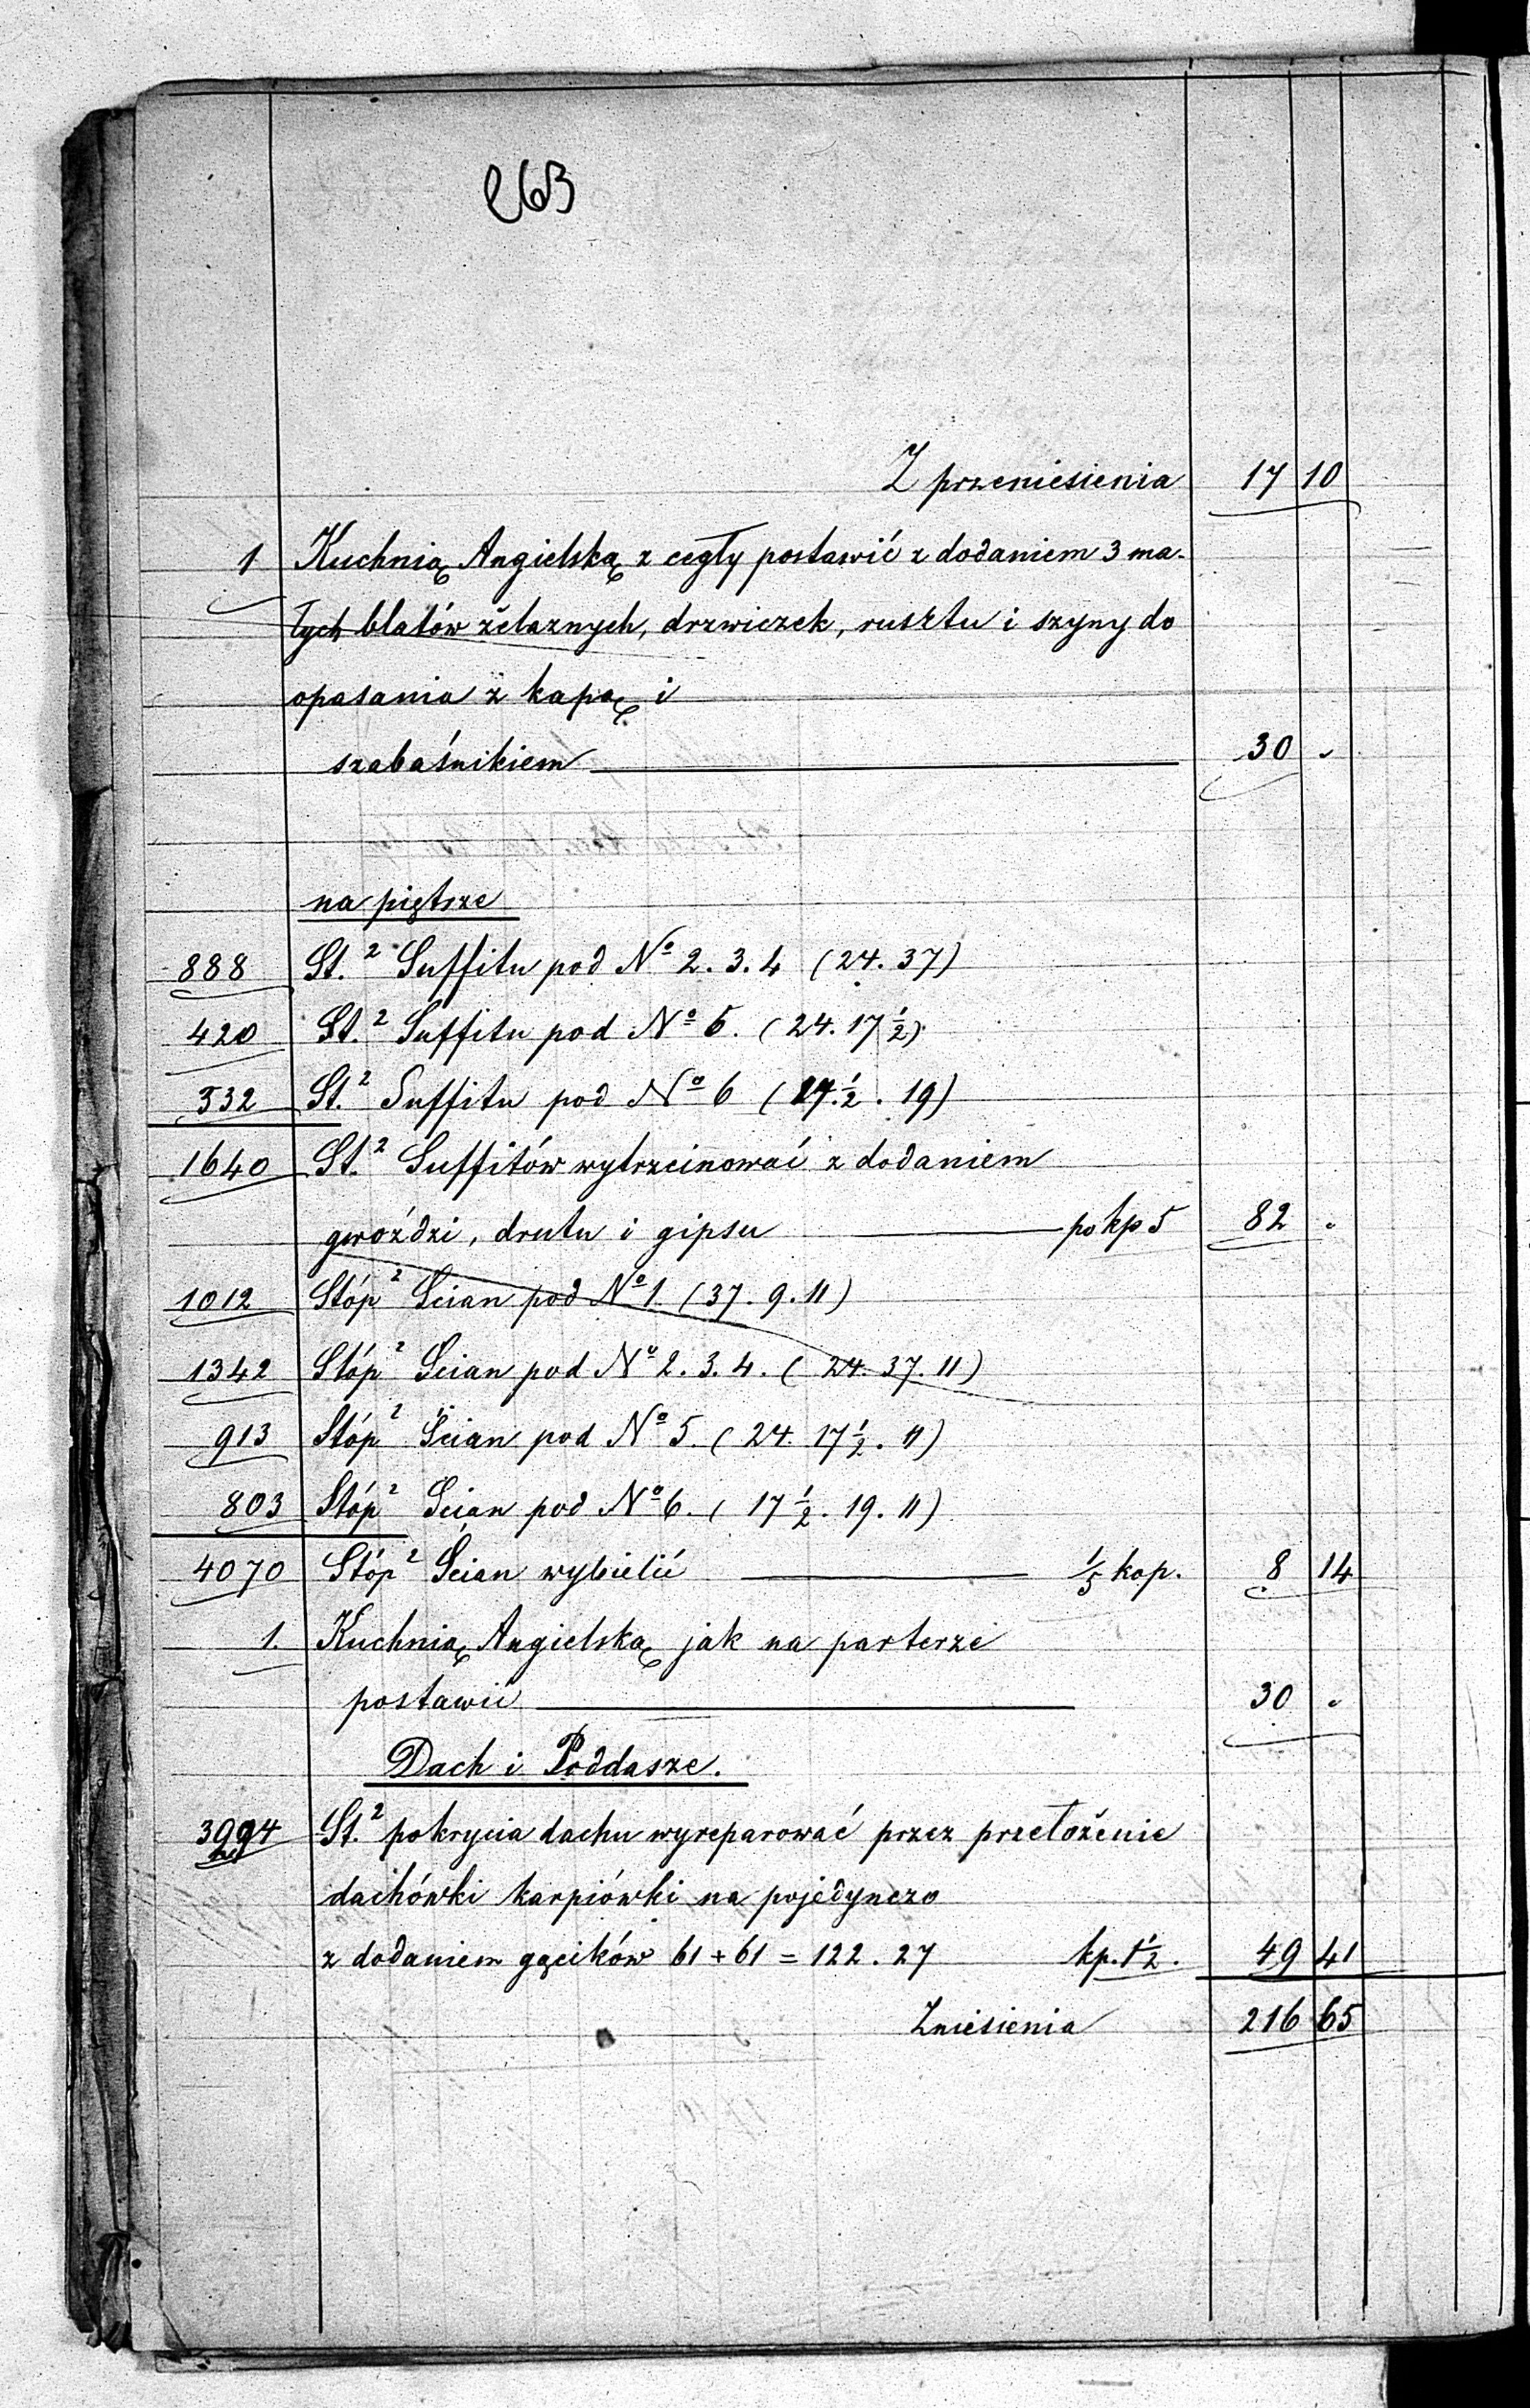 263
Z przeniesienia 17 10
1 Kuchnią Angielską z cegły postawić z dodaniem 3 ma-
łych blatów żelaznych, drzwiczek, rusztu i szyny do
opasania z kapą i
szabaśnikiem 30 "
na piętrze
888 St.² Suffitu pod Nº 2. 3. 4 (24. 37)
420 St.² Suffitu pod Nº 5. (24. 17½)
332 St.² Suffitu pod Nº 6 (17½. 19)
1640 St.² Suffitów wytrzcinować z dodaniem
gwoździ, drutu i gipsu po kp 5 82 "
1012 Stóp² Ścian pod Nº 1. (37. 9. 11)
1342 Stóp² Ścian pod Nº 2. 3. 4. (24. 37. 11)
913 Stóp² Ścian pod Nº 5. (24. 17½. 11)
803 Stóp² Ścian pod Nº 6. (17½. 19. 11)
4070 Stóp² Ścian wybielić ⅕ kop. 8 14
1. Kuchnią Angielską jak na parterze
postawić 30 "
Dach i Poddasze.
3294 St.² pokrycia dachu wyreparować przez przełożenie
dachówki karpiówki na pojedynczo
z dodaniem gącików 61 + 61 = 122. 27 kp. 1½. 49 41
Zniesienia 216 65